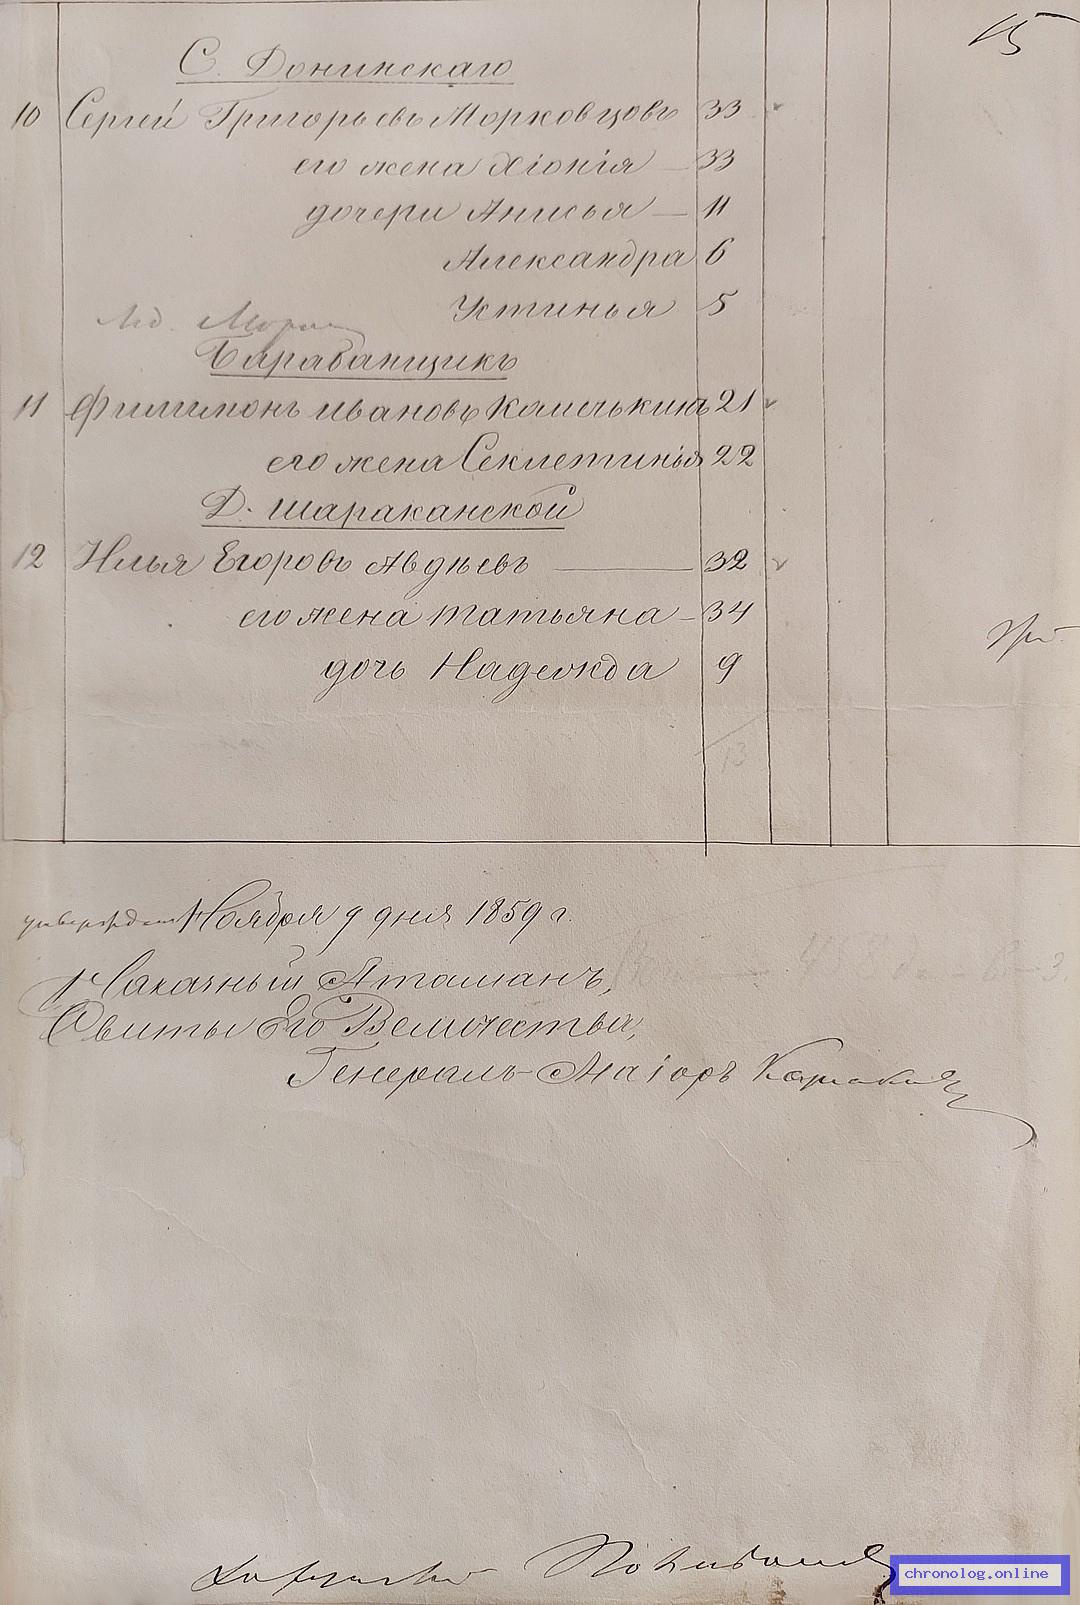 15
С. Донинскаго
10 Сергей Григорьевъ Морковцовъ 33
его жена Хіонія — 33
дочери Анисья — 11
Александра 6
Устинья 5
Барабанщикъ
11 Филимонъ Ивановъ Камечькинъ 21
его жена Секлетинья 22
Д. Шараканской
12 Илья Егоровъ Авдѣевъ — 32
его жена Татьяна — 34
дочь Надежда 9
13
Ноября 9 дня 1859 г.
Наказный Атаманъ,
Свиты Его Величества,
Генералъ-Маіоръ
chronolog.online